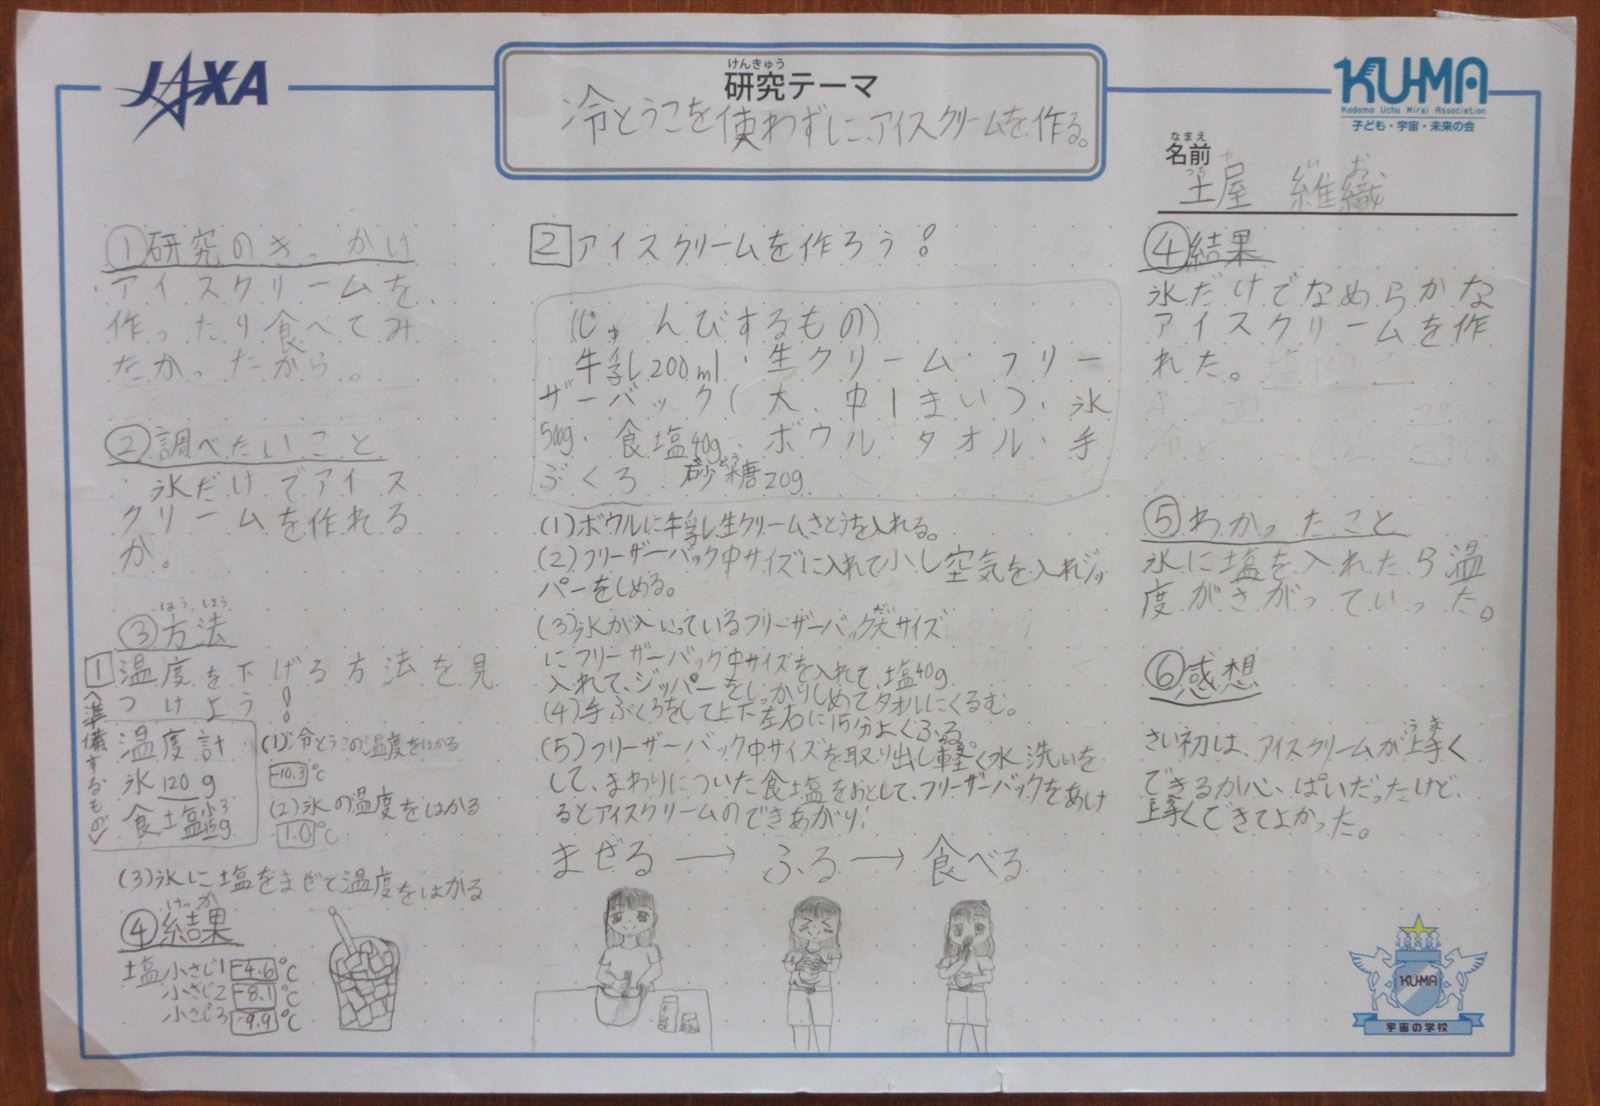 JAXA
けんきゅう
研究テーマ
冷とうこを使わずにアイスクリームを作る。
KU-MA
Kodomo Uchu Mirai Association
子ども・宇宙・未来の会
なまえ
名前
つち や い お
土屋 維織
①研究のきっかけ
アイスクリームを
作ったり食べてみ
たかったから。
②調べたいこと
氷だけでアイス
クリームを作れる
か。
ほう ほう
③方法
1 温度を下げる方法を見
つけよう!
〈準備するもの〉
温度計
氷120g
食塩小3
15g
(1)冷とうこの温度をはかる
-10.3℃
(2)氷の温度をはかる
1.0℃
(3)氷に塩をまぜて温度をはかる
けっか
④結果
塩小さじ1 -4.6℃
小さじ2 -8.1℃
小さじ3 -9.9℃
2 アイスクリームを作ろう!
(じゅんびするもの)
牛乳200ml・生クリーム・フリー
ザーバック(大、中1まいづつ、氷
500g・食塩40g・ボウル・タオル・手
ぶくろ 砂糖20g
さとう
(1)ボウルに牛乳生クリームさとうを入れる。
(2)フリーザーバック中サイズに入れて小し空気を入れジッ
パーをしめる。
(3)氷が入いっているフリーザーバック大サイズ
だい
にフリーザーバック中サイズを入れて、塩40g
入れて、ジッパーをしっかりしめてタオルにくるむ。
(4)手ぶくろをして上下左右に15分よくふる。
(5)フリーザーバック中サイズを取り出し軽く水洗いを
して、まわりについた食塩をおとして、フリーザーバックをあけ
るとアイスクリームのできあがり!
まぜる→ふる→食べる
④結果
氷だけでなめらかな
アイスクリームを作
れた。
⑤わかったこと
氷に塩を入れたら温
度がさがっていった。
⑥感想
さい初は、アイスクリームが上手く
うま
できるか心ぱいだったけど、
上手くできてよかった。
KU-MA
宇宙の学校